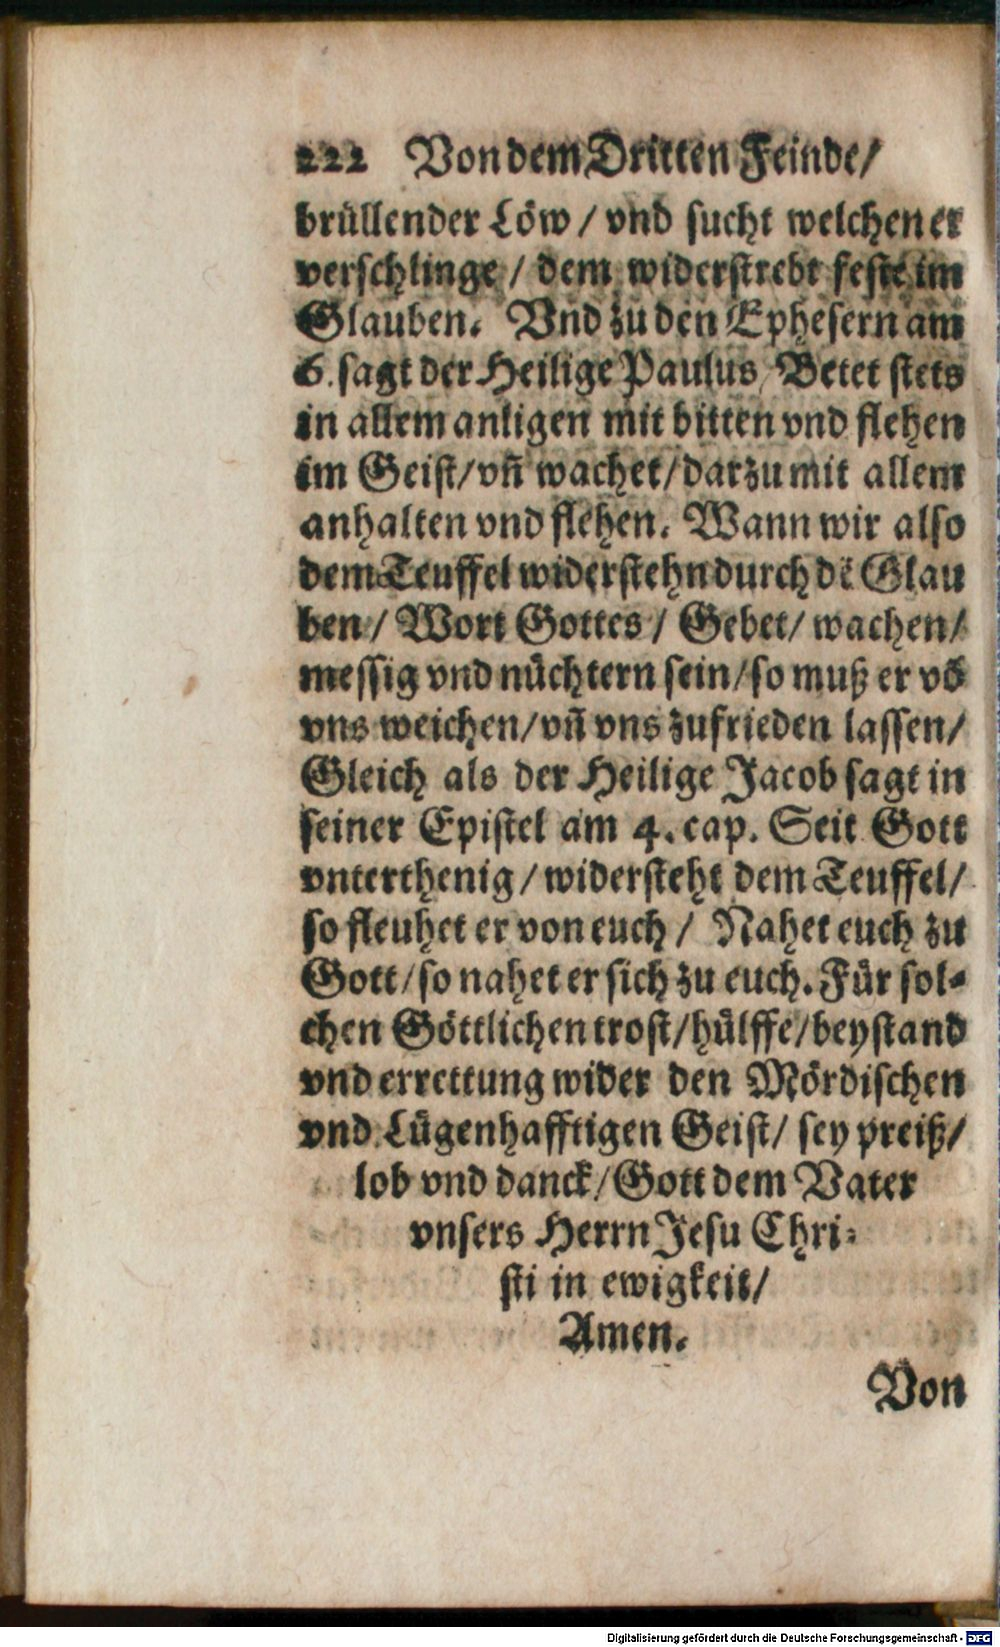 222 Von dem Dritten Feinde/
brüllender Löw / vnd sucht welchen er
verschlinge / dem widerstrebt feste im
Glauben. Vnd zu den Ephesern am
6. sagt der Heilige Paulus, Betet stets
in allem anligen mit bitten vnd flehen
im Geist/ vñ wachet/ darzu mit allem
anhalten vnd flehen. Wann wir also
dem Teuffel widerstehn durch dẽ Glau
ben/ Wort Gottes/ Gebet/ wachen/
messig vnd nüchtern sein/ so muß er võ
vns weichen/ vñ vns zufrieden lassen/
Gleich als der Heilige Jacob sagt in
seiner Epistel am 4. cap. Seit Gott
vnterthenig/ widersteht dem Teuffel/
so fleuhet er von euch / Nahet euch zu
Gott/ so nahet er sich zu euch. Für sol-
chen Göttlichen trost/ hülffe/ beystand
vnd errettung wider den Mördischen
vnd Lügenhafftigen Geist/ sey preiß/
lob vnd danck/ Gott dem Vater
vnsers Herrn Jesu Chri-
sti in ewigkeit/
Amen.
Von
Digitalisierung gefördert durch die Deutsche Forschungsgemeinschaft - DFG